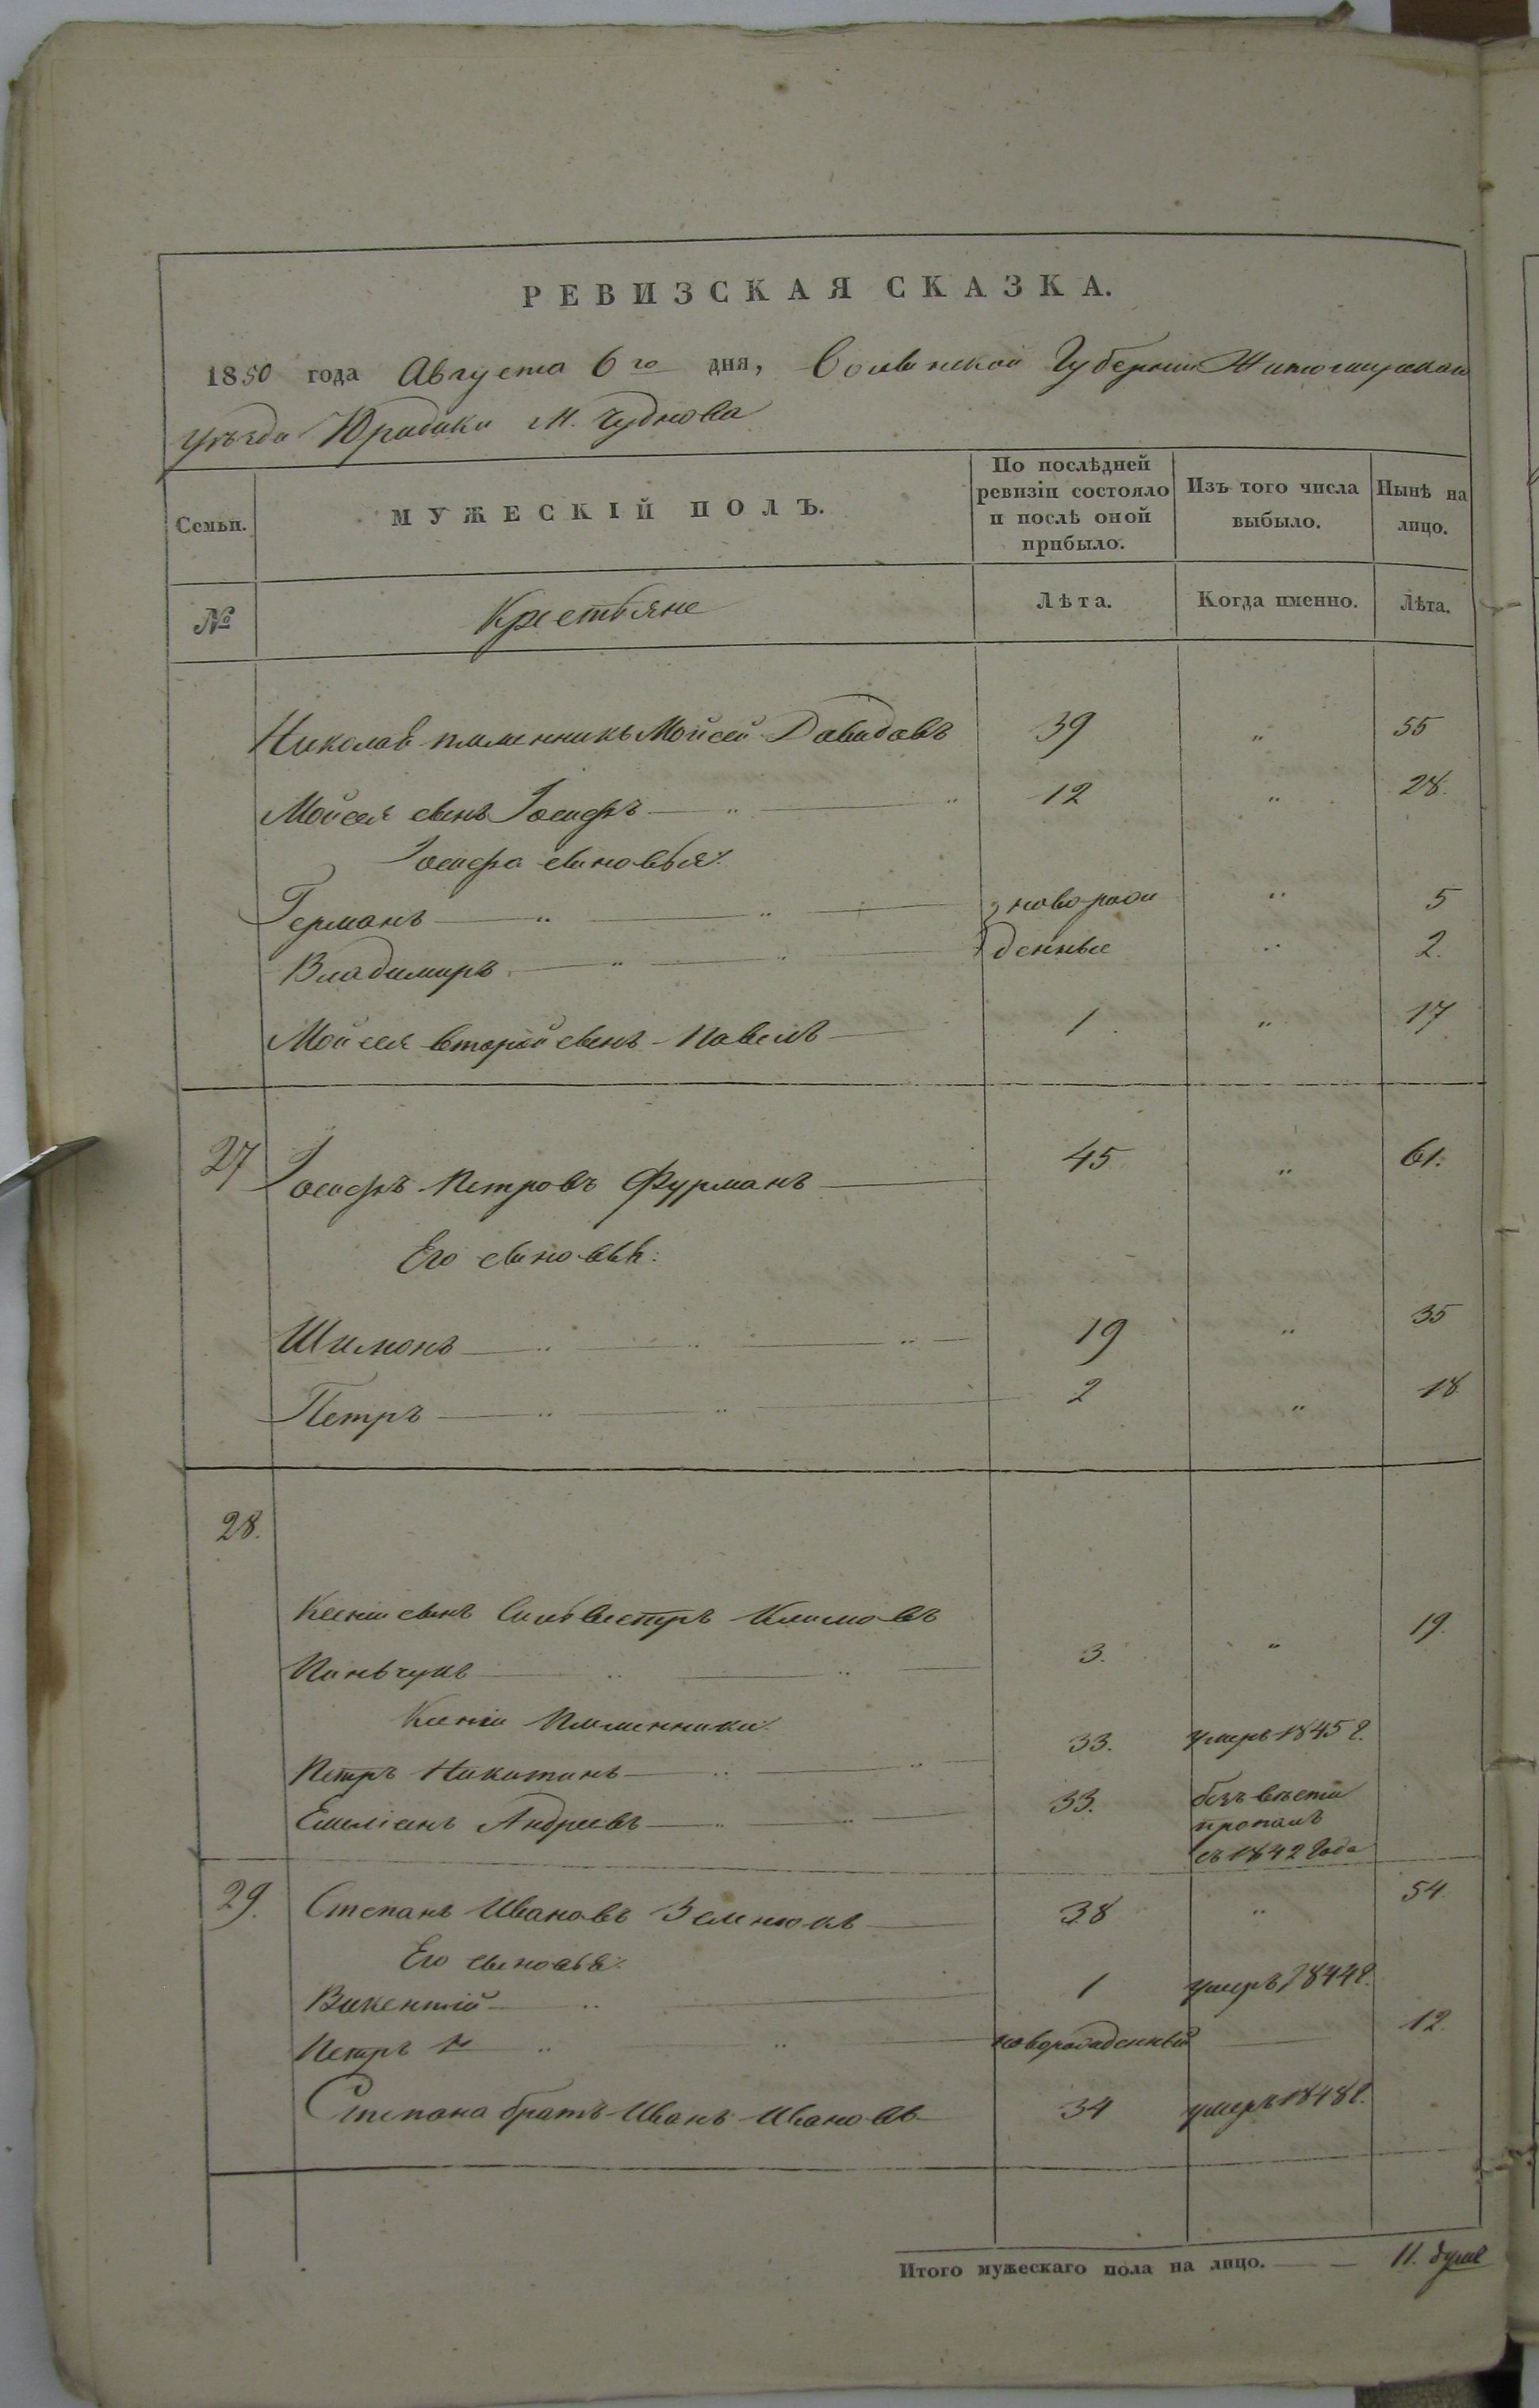 РЕВИЗСКАЯ СКАЗКА.
1850 года Августа 6го дня, Волынской Губернии Житомирскаго
уѣзда Юридики М. Чуднова
Семьи. МУЖЕСКІЙ ПОЛЪ. По послѣдней ревизіи состояло и послѣ оной прибыло. Изъ того числа выбыло. Нынѣ на лицо.
№ Крестьяне Лѣта. Когда именно. Лѣта.
Николая племенникъ Мойсей Давидовъ 39 " 55
Мойсея сынъ Іосифъ — " — " 12 " 28.
Іосифа сыновья:
Германъ — " — " — новорож " 5
Владимиръ — " — " — денные " 2.
Мойсея второй сынъ Павелъ — 1. " 17
27 Іосифъ Петровъ Фурманъ — 45 " 61.
Его сыновья:
Шимонъ — " — " — " — 19 " 35
Петръ — " — " — 2 " 18
28.
Ксеніи сынъ Сильвестръ Климовъ
Паньчукъ — " — " — 3. " 19.
Ксеніи Племенники:
Петръ Никитинъ — " — " — 33. умеръ 1845 г.
Емеліанъ Андреевъ — " — " — 33. безъ вѣсти
пропалъ
съ 1842 года
29. Степанъ Ивановъ Зеленюкъ — 38 " 54.
Его сыновья:
Викентій — " — 1 умеръ 1844 г.
Петръ — " — " — новорожденный — 12.
Степана братъ Иванъ Ивановъ 34 умеръ 1848 г.
Итого мужескаго пола на лицо. — — 11. душъ